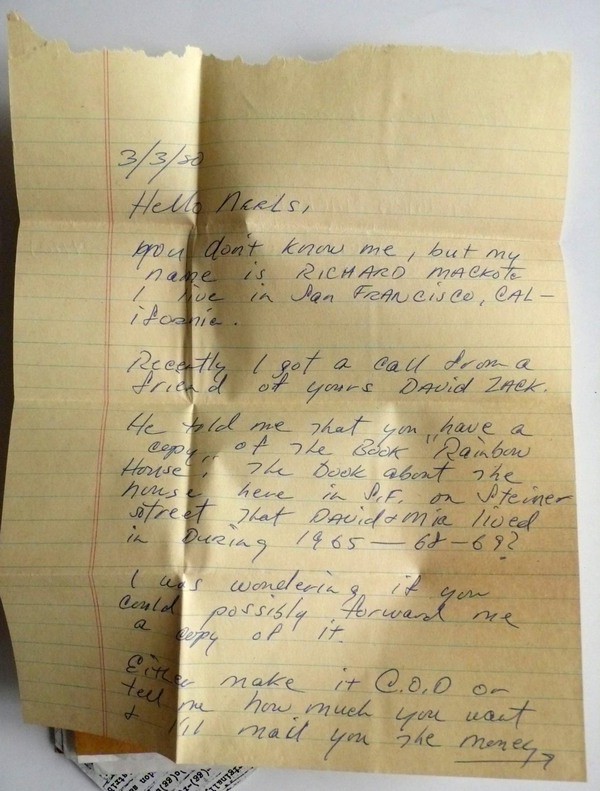 3/3/80
Hello Neels,
you don't know me, but my
name is RICHARD MACKOTE
I live in San FRANCISCO, CAL-
ifornia.
Recently I got a call from a
friend of yours DAVID ZACK.
He told me that you have a
copy of the Book "Rainbow
House". The book about the
house here in S.F. on Steiner
street that DAVID & Mia lived
in During 1965 — 68-69?
I was wondering if you
could possibly forward me
a copy of it.
Either make it C.O.D or
tell me how much you want
& I'll mail you the money